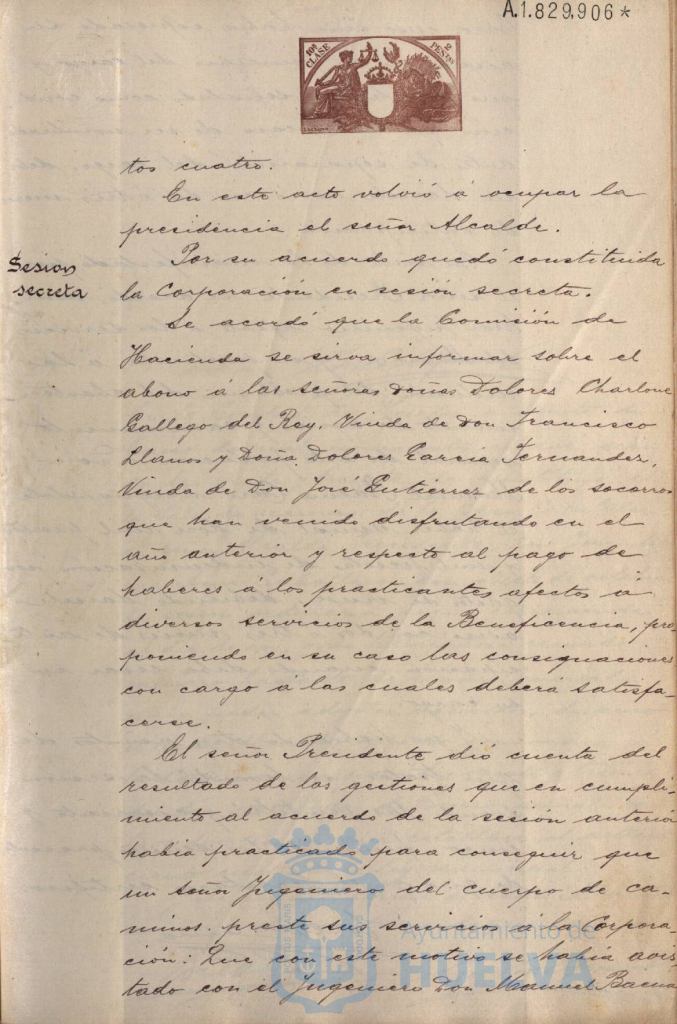 A.1.829,906*
10ª CLASE
2 PESETAS
tos cuatro.
En este acto volvió á ocupar la
presidencia el señor Alcalde.
Sesion
secreta
Por su acuerdo quedó constituida
la Corporación en sesión secreta.
Se acordó que la Comisión de
Hacienda se sirva informar sobre el
abono á las señoras doñas Dolores Charlone
Gallego del Rey, Viuda de don Francisco
Llanos y Doña Dolores Garcia Fernandez,
Viuda de Don José Gutiérrez de los socorros
que han venido disfrutando en el
año anterior y respecto al pago de
haberes á los practicantes afectos á
diversos servicios de la Beneficencia, pro-
poniendo en su caso las consignaciones
con cargo á las cuales deberá satisfa-
cerse.
El señor Presidente dió cuenta del
resultado de las gestiones que en cumpli-
miento al acuerdo de la sesión anterior
había practicado para conseguir que
un señor Ingeniero del cuerpo de ca-
minos. preste sus servicios á la Corpora-
ción: Que con este motivo se había avis-
tado con el Ingeniero Don Manuel Baena
Ayuntamiento de
HUELVA